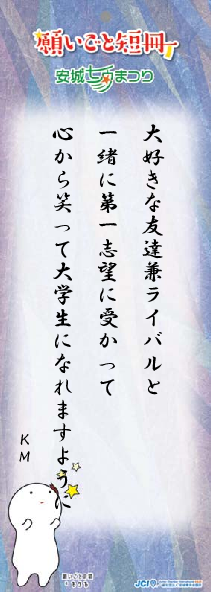 願いごと短冊
安城七夕まつり
大好きな友達兼ライバルと
一緒に第一志望に受かって
心から笑って大学生になれますように
KM
JCI